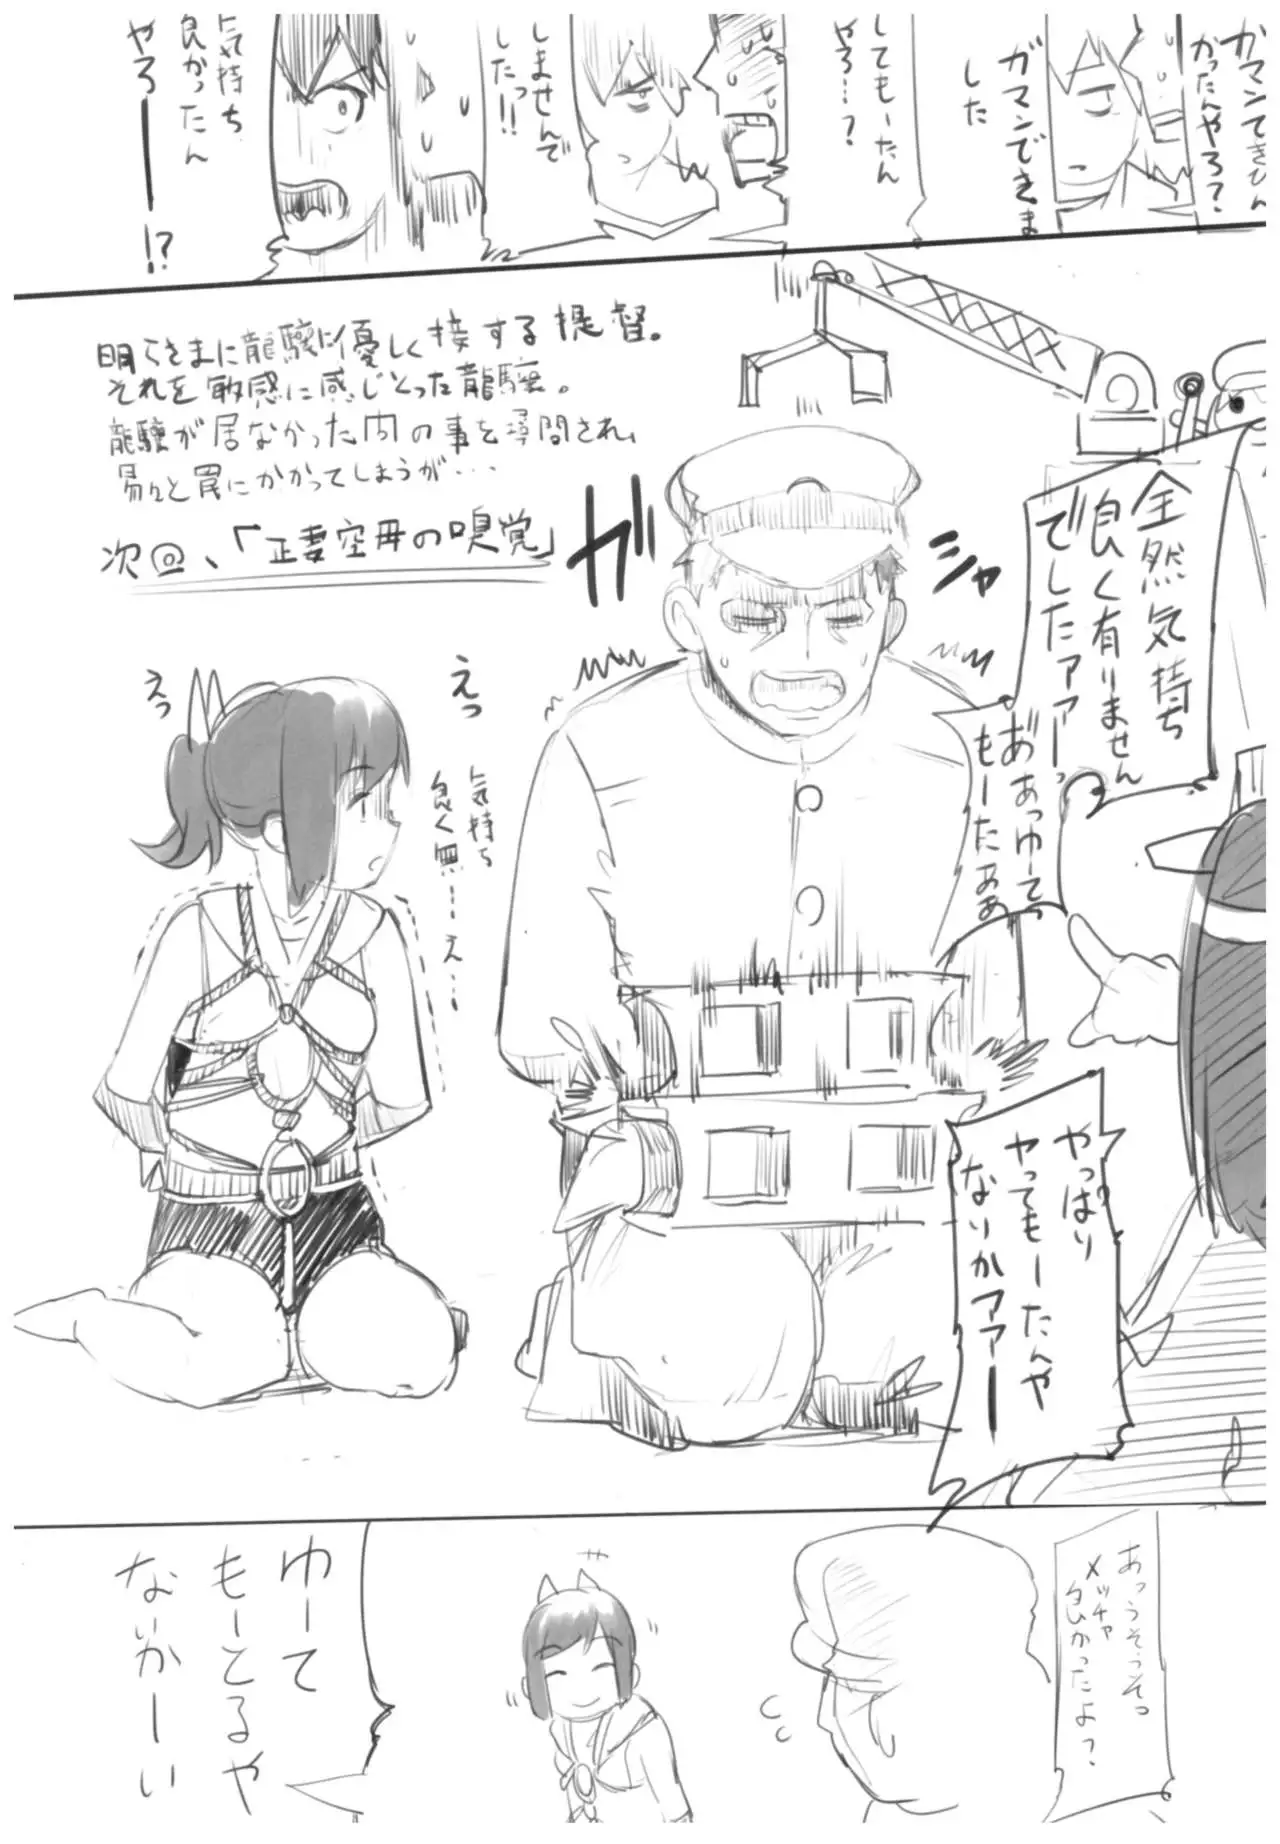 ガマンできひん
かったんやろ？
ガマンできま
した
してもーたん
やろ…？
しませんで
したっ!!
気持ち
良かったん
やろーーー!?
明らさまに龍驤に優しく接する提督。
それを敏感に感じとった龍驤。
龍驤が居なかった間の事を尋問され、
易々と罠にかかってしまうが・・・
次回、「正妻空母の嗅覚」
ガ
シャ
全然気持ち
良く有りません
でしたァァーっ
あ゛あっゆーて
もーたぁぁ
えっ
えっ
気持ち
良く無…え…
やっぱり
ヤってもーたんや
ないかァァーー
あっうそうそっ
メッチャ
良かったよ？
ゆーて
もーとるや
ないかーい